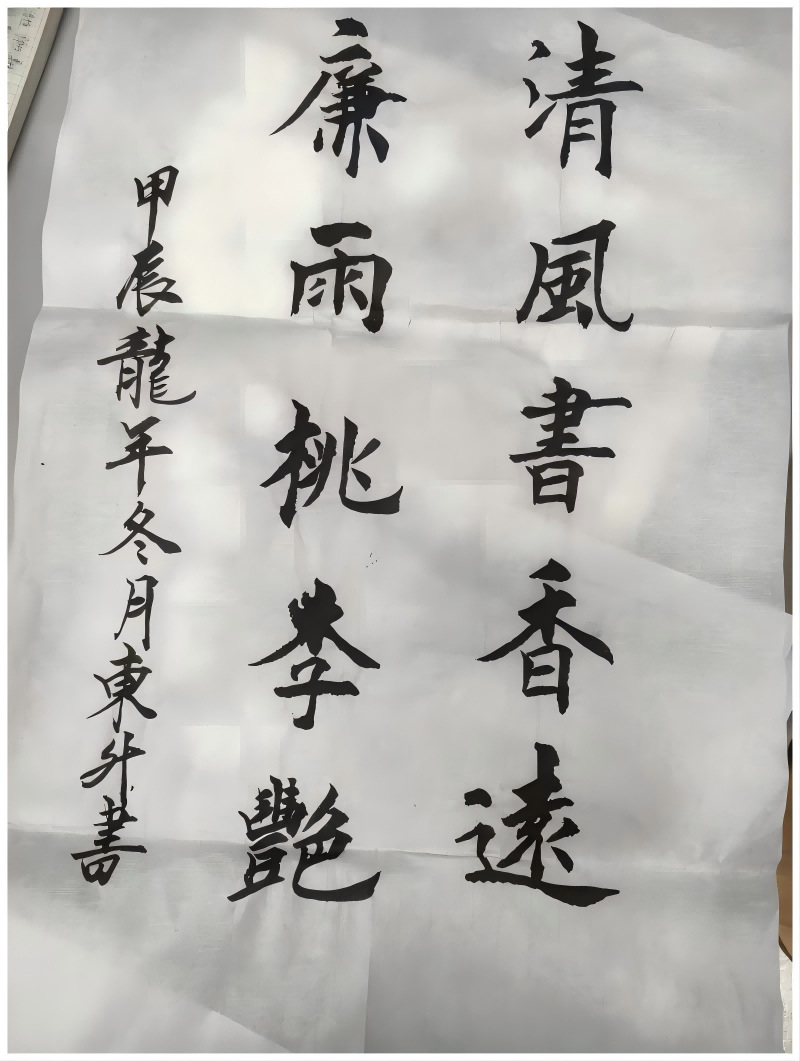 清風書香遠
廉雨桃李艷
甲辰龍年冬月東升書